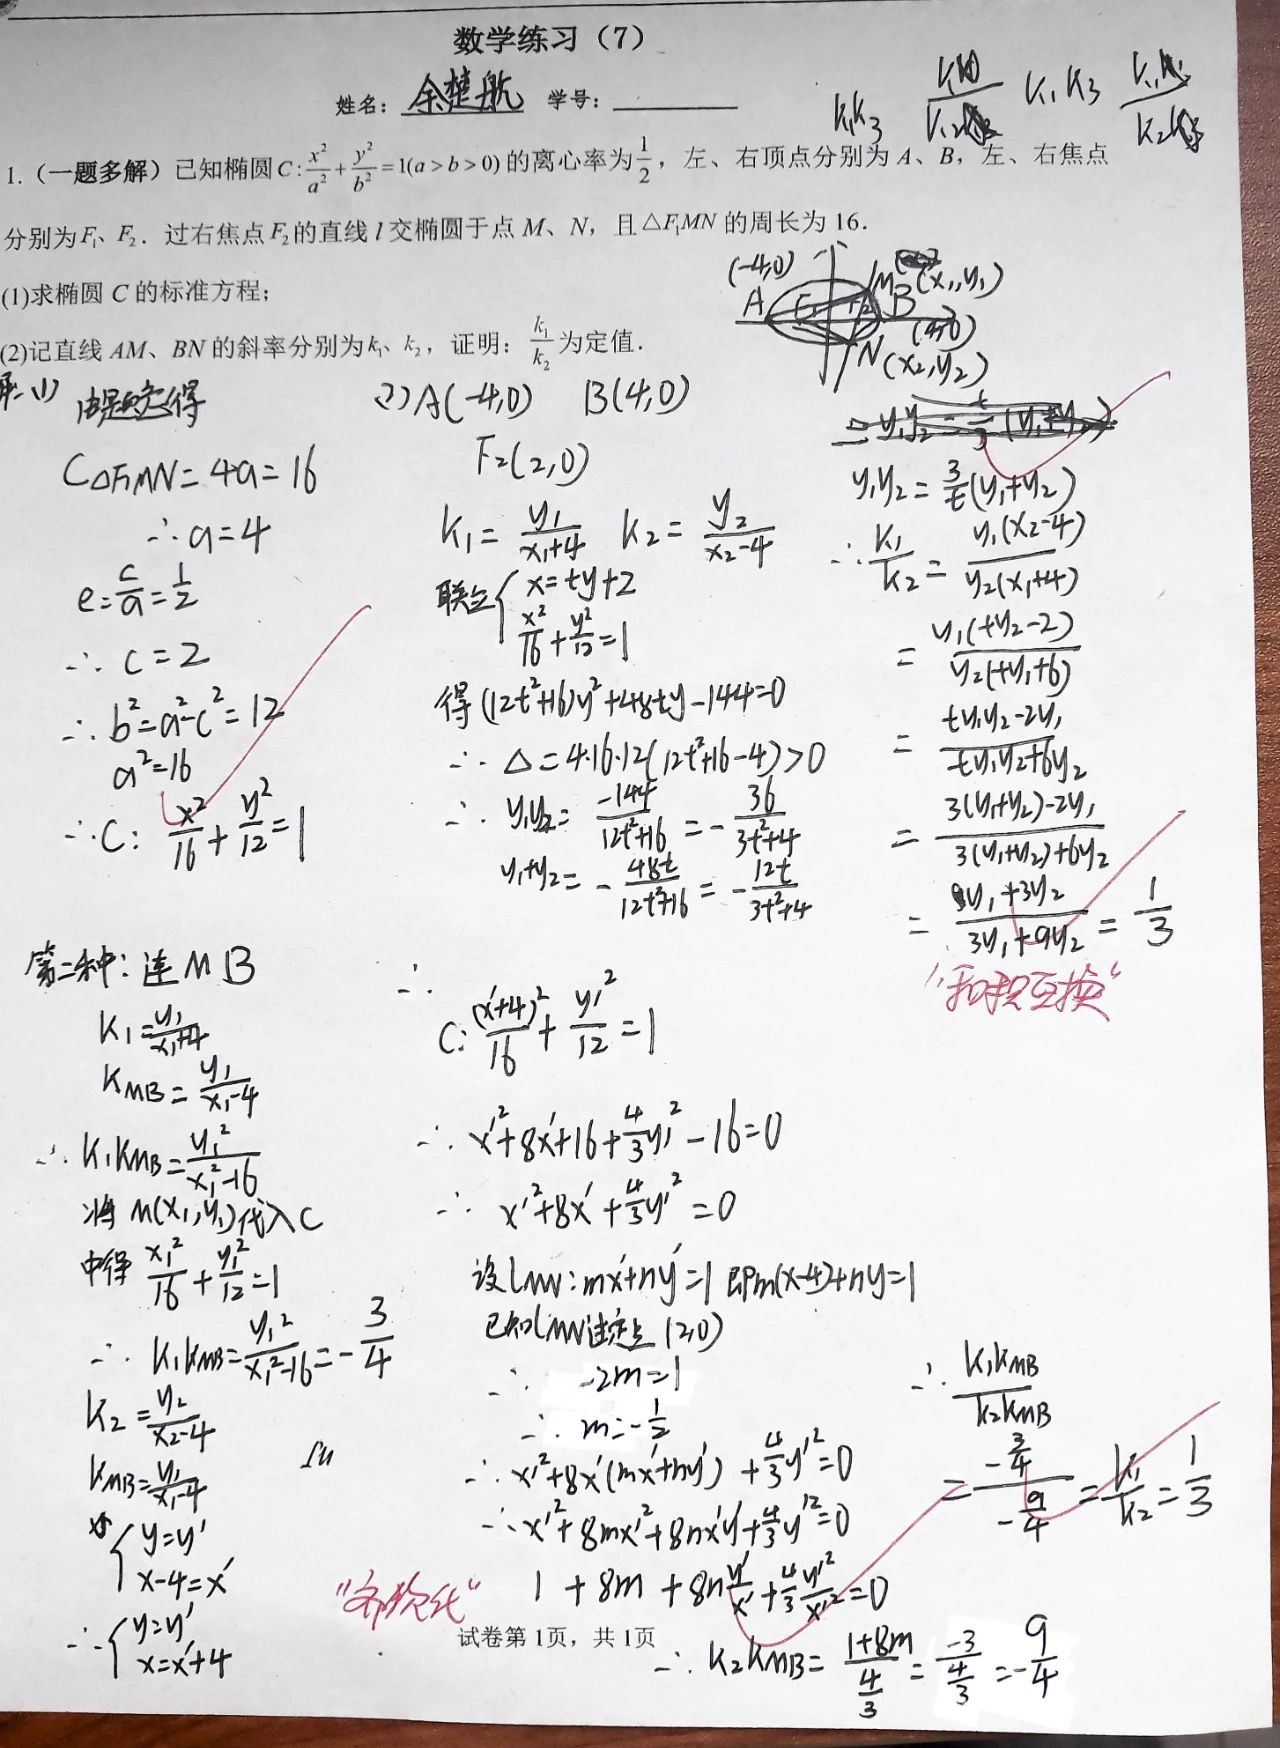 数学练习（7）
姓名：余楚航 学号：
k₁k₃ k₁k₃
1.（一题多解）已知椭圆C:x²/a²+y²/b²=1(a>b>0)的离心率为1/2，左、右顶点分别为A、B，左、右焦点
分别为F₁、F₂．过右焦点F₂的直线l交椭圆于点M、N，且△F₁MN的周长为16．
(1)求椭圆C的标准方程；
(2)记直线AM、BN的斜率分别为k₁、k₂，证明：k₁/k₂为定值．
(-4,0) M (x₁,y₁)
A F₁ F₂ B
(4,0)
N (x₂,y₂)
解:(1) 由题意得
C△F₁MN=4a=16
∴a=4
e=c/a=1/2
∴c=2
∴b²=a²-c²=12
a²=16
∴C: x²/16+y²/12=1
(2)A(-4,0) B(4,0)
F₂(2,0)
k₁=y₁/(x₁+4) k₂=y₂/(x₂-4)
联立{x=ty+2
x²/16+y²/12=1
得(12t²+16)y²+48ty-144=0
∴Δ=4·16·12(12t²+16-4)>0
∴y₁y₂=-144/(12t²+16)=-36/(3t²+4)
y₁+y₂=-48t/(12t²+16)=-12t/(3t²+4)
y₁y₂=3/t(y₁+y₂)
∴k₁/k₂=y₁(x₂-4)/y₂(x₁+4)
=y₁(ty₂-2)/y₂(ty₁+6)
=(ty₁y₂-2y₁)/(ty₁y₂+6y₂)
=(3(y₁+y₂)-2y₁)/(3(y₁+y₂)+6y₂)
=(y₁+3y₂)/(3y₁+9y₂)=1/3
"和积互换"
第二种：连MB
k₁=y₁/(x₁+4)
kMB=y₁/(x₁-4)
∴k₁kMB=y₁²/(x₁²-16)
将M(x₁,y₁)代入C
中得x₁²/16+y₁²/12=1
∴k₁kMB=y₁²/(x₁²-16)=-3/4
k₂=y₂/(x₂-4)
kMB=y₁/(x₁-4)
{y=y'
x-4=x'
∴{y=y'
x=x'+4
∴
C:(x'+4)²/16+y'²/12=1
∴x'²+8x'+16+4/3y'²-16=0
∴x'²+8x'+4/3y'²=0
设lMN:mx'+ny'=1即m(x-4)+ny=1
已知lMN过定点(2,0)
∴-2m=1
∴m=-1/2
∴x'²+8x'(mx'+ny')+4/3y'²=0
∴x'²+8mx'²+8nx'y'+4/3y'²=0
1+8m+8ny'/x'+4/3y'²/x'²=0
∴k₂kMB=(1+8m)/(4/3)=-3/(4/3)=-9/4
∴k₁kMB/k₂kMB
=(-3/4)/(-9/4)=k₁/k₂=1/3
"齐次化"
试卷第1页，共1页